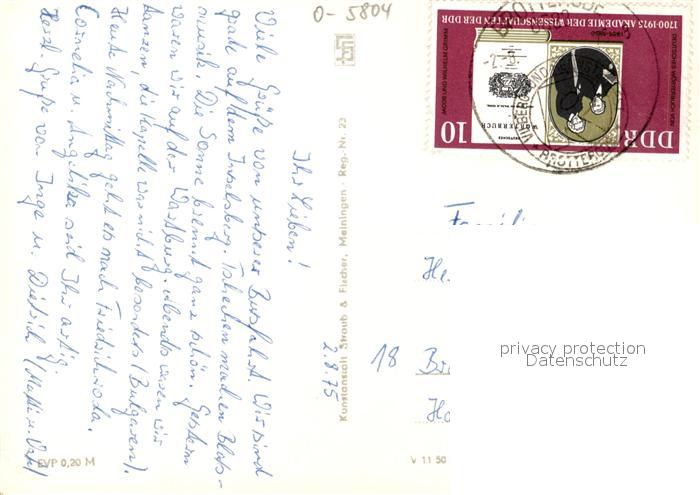 O-5804
2.8.75
Ihr Lieben!
Viele Grüße von unserer Busfahrt. Wir sind
grade auf dem Inselsberg. Tschechen machen Blas-
musik. Die Sonne brennt ganz schön. Gestern
waren wir auf der Wartburg. Abends waren wir
tanzen, die Kapelle war nicht besonders (Bulgaren).
Heute Nachmittag geht es nach Friedrichroda.
Cornelia u. Angelika seid Ihr artig
Herzl. Grüße von Inge u. Dietrich
EVP 0,20 M
Kunstanstalt Straub & Fischer, Meiningen · Reg.-Nr. 23
V 11 50
1700-1975 AKADEMIE DER WISSENSCHAFTEN DER DDR
JACOB UND WILHELM GRIMM
WÖRTERBUCH
10
DDR
BROTTERODE
Familie
He
18 Br
Ho
privacy protection
Datenschutz